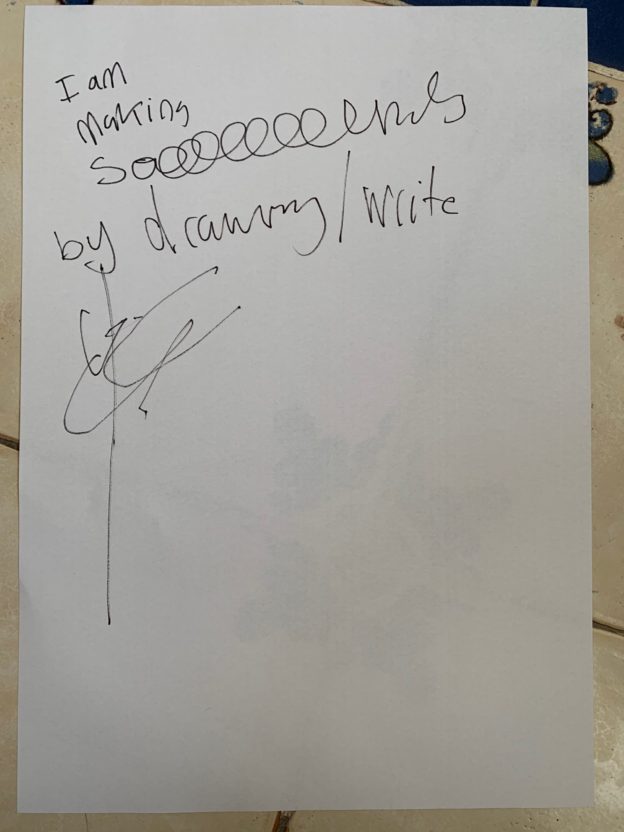 I am
making
by drawing/write